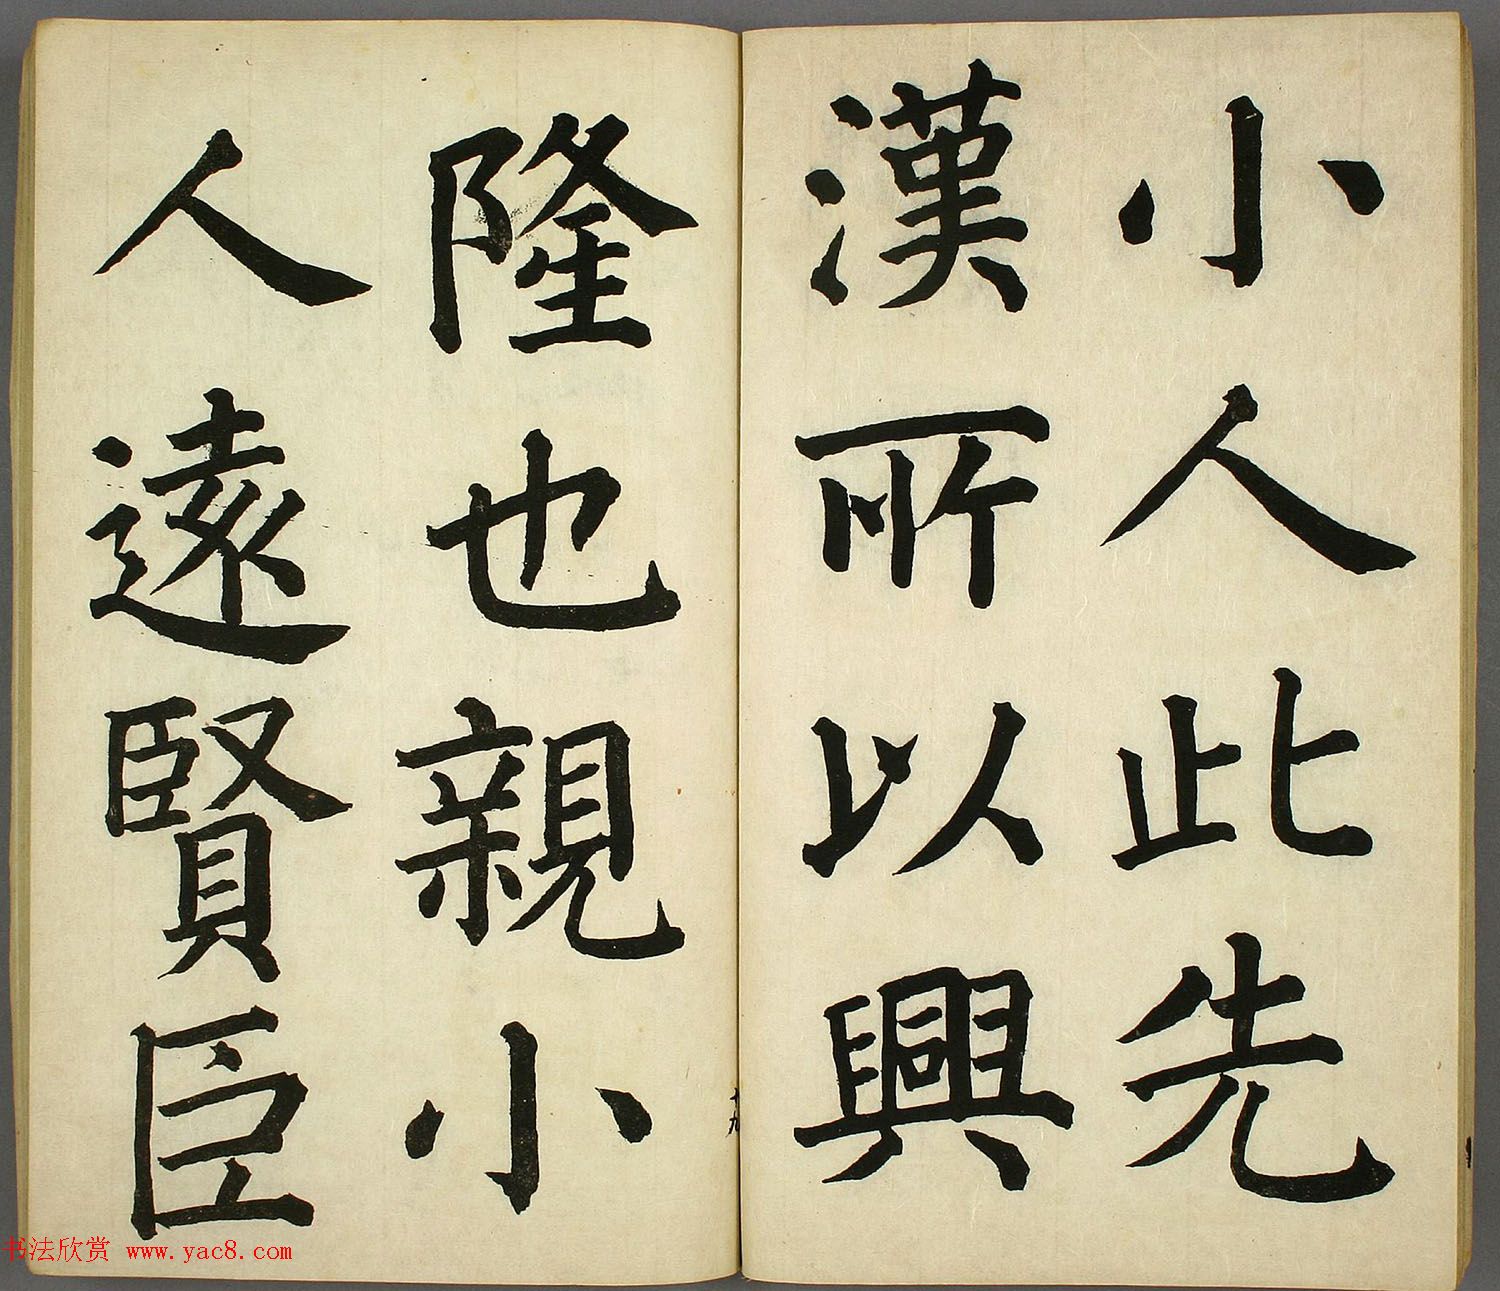 小人此先
漢所以興
隆也親小
人遠賢臣
十九
书法欣赏 www.yac8.com